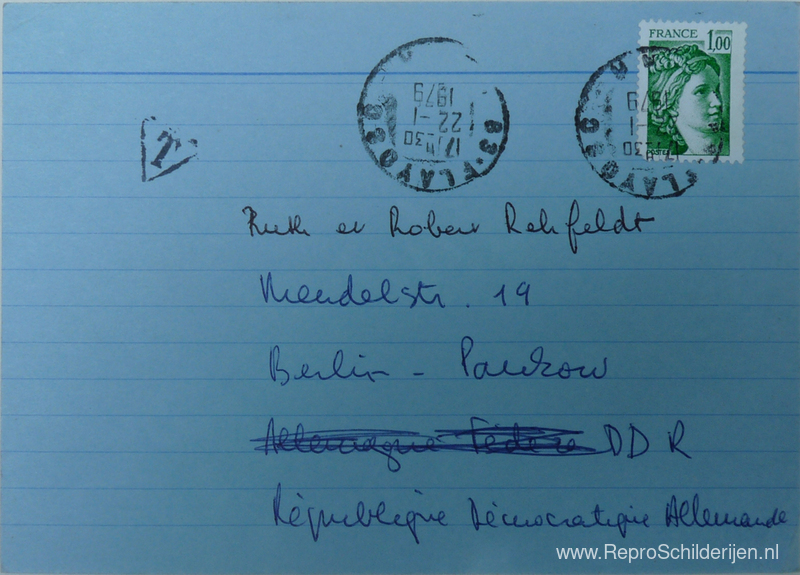 FRANCE 1,00
83 · FLAYOSC
17 H30
22 - 1
1979
83 · FLAYOSC
17 H30
1979
T
Ruth et Robert Rehfeldt
Mendelstr. 19
Berlin - Pankow
Allemagne Fédéra DDR
République Démocratique Allemande
www.ReproSchilderijen.nl